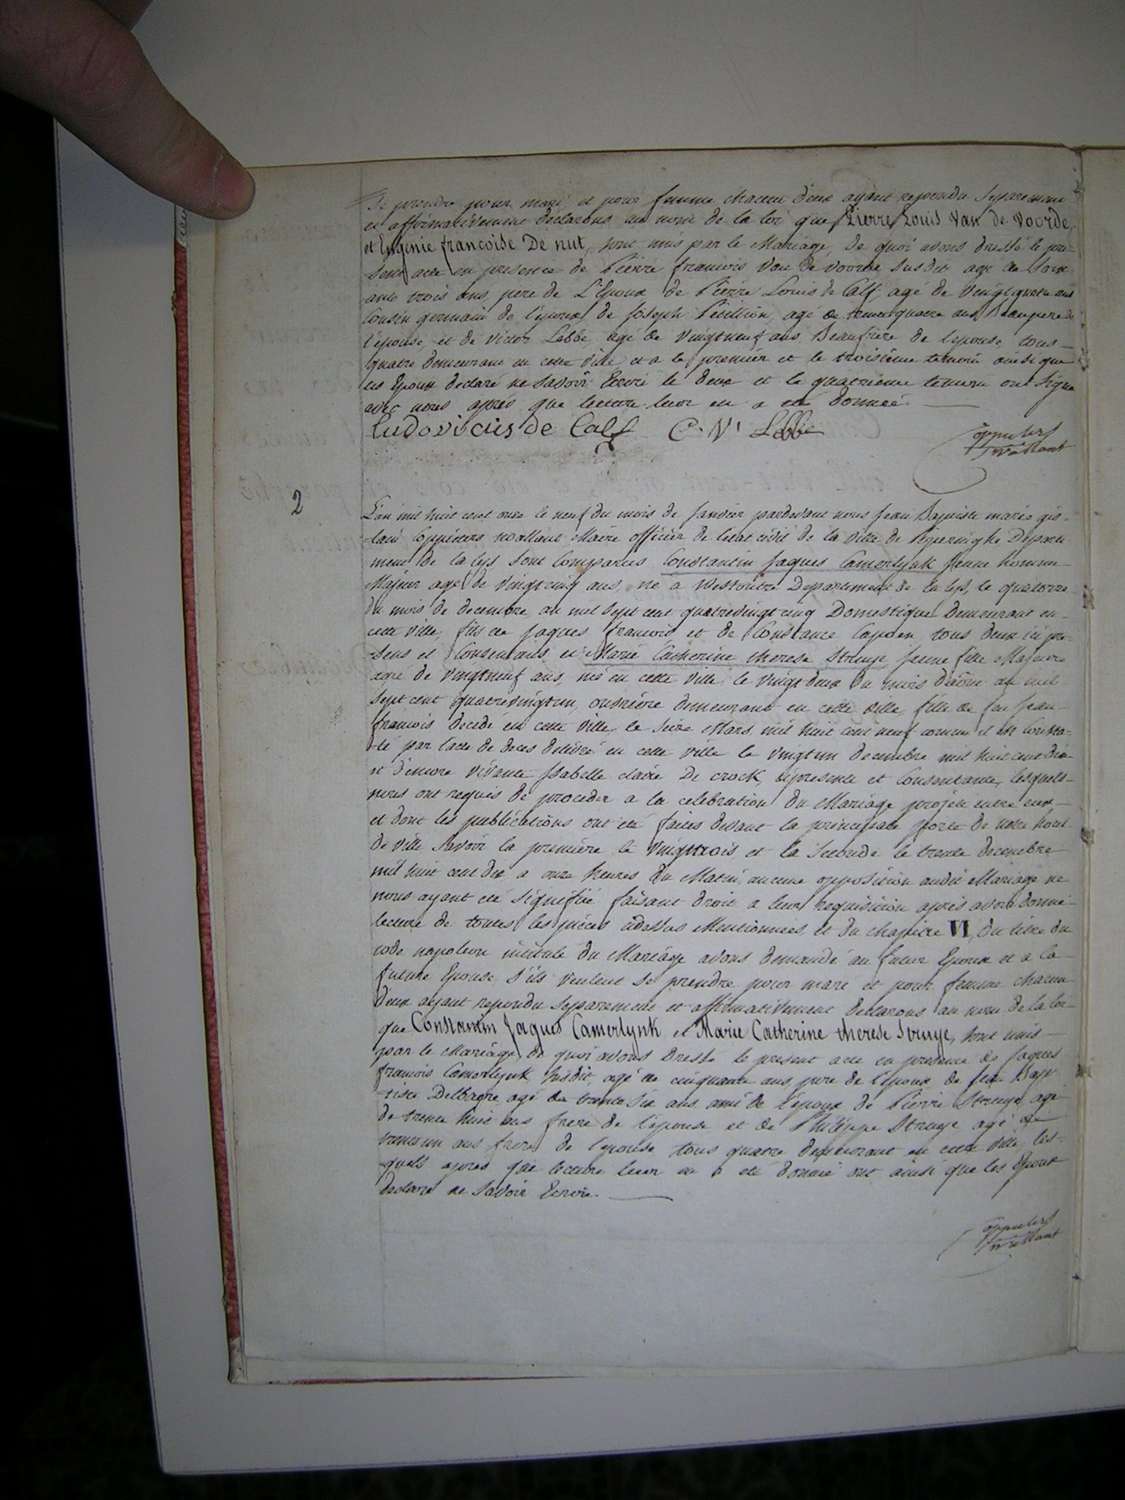 Se prendre pour mari et pour femme chacun d'eux ayant repondu separement
et affirmativement declarons au nom de la loi que Pierre Louis Van de Voorde
et Eugenie françoise De nut, sont unis par le Mariage, de quoi avons dressé le pre-
sent acte en presence de Pierre francois Van de Voorde susdit agé de soix
ante trois ans, pere de L'Epoux de Pierre Louis de Calf agé de Vingtquatre ans
Cousin germain de l'epoux de Joseph agé de trentequatre ans Beaupere de
l'epouse et de Victor Lebbe agé de Vingtneuf ans Beaufrère de l'epouse, tous
quatre demeurant en cette Ville et a le premier et le troisieme temoin ainsi que
les Epoux declaré ne savoir Ecrire le deux et le quatrieme temoin ont signé
avec nous après que lecture leur en a eté donnée
Ludovicus de Calf C. N. Lebbe
2
L'an mil huit cent onze le neuf du mois de Janvier pardevant nous Jean Baptiste marie gis-
-lain Maire officier de l'etat civil de la ville de Departe-
ment de la Lys sont Comparus Constantin Jaques Camerlynk Jeune homme
Majeur agé de Vingtcinq ans, né a Westoutre Departement de la Lys, le quatorze
du mois de decembre an mil sept cent quatrevingtcinq Domestique demeurant en
cette Ville, fils de Jaques francois et de Constance tous deux ici pre-
sens et Consentans et Marie Catherine therese Struye Jeune fille Majeure
agée de Vingtneuf ans née en cette Ville le Vingt deux du mois d'août an mil
sept cent quatrevingtun, ouvrière demeurant en cette Ville, fille de feu Jean
francois decede en cette Ville le seize Mars mil huit cent neuf comme il est consta-
té par l'acte de deces delivré en cette ville le vingtun decembre mil huit cent dix
et d'encore vivante Isabelle claire De crock, ci presente et Consentante, lesquels
nous ont requis de proceder a la celebration du Mariage projeté entre eux
et dont les publications ont eté faites devant la principale porte de notre hotel
de Ville Savoir la première le Vingttrois et la seconde le trente decembre
mil huit cent dix a onze heures du Matin, aucune opposition audit Mariage ne
nous ayant eté signifiée faisant droit a leur requisition après avoir donné
lecture de toutes les pièces cidessus Mentionnées, et du chapitre VI, du titre du
code napoleon intitulé du Mariage avons demandé au futur Epoux et a la
future Epouse s'ils veulent se prendre pour mari et pour femme chacun
d'eux ayant repondu separement et affirmativement declarons au nom de la loi
que Constantin Jaques Camerlynk et Marie Catherine therese Struye, sont unis
par le Mariage de quoi avons dressé le present acte en presence de Jaques
francois Camerlynk susdit, agé de cinquante ans pere de l'epoux de Jean Bap-
tiste agé de trente six ans ami de l'epoux de Pierre Struye agé
de trente huit ans frere de l'epouse et de Philippe Struye agé de
trenteun ans frere de l'epouse tous quatre demeurant en cette Ville, les-
quels après que lecture leur en a eté donnée ont ainsi que les Epoux
declaré ne savoir Ecrire.